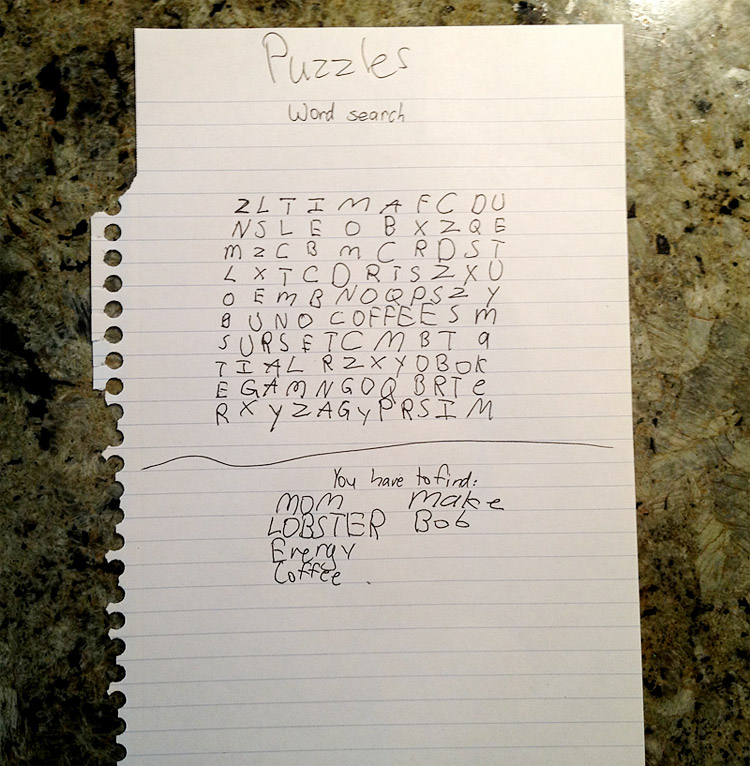 Puzzles
Word search
Z L T I M A F C D U
N S L E O B X Z Q E
M Z C B M C R D S T
L X T C D R T S Z X U
O E M B N O Q P S Z Y
B U N O C O F F E E S M
S U R S E T C M B T a
T I A L R Z X Y O B O K
E G A M N G O Q B R T e
R X Y Z A G Y P R S I M
You have to find:
MOM make
LOBSTER Bob
Energy
Coffee .